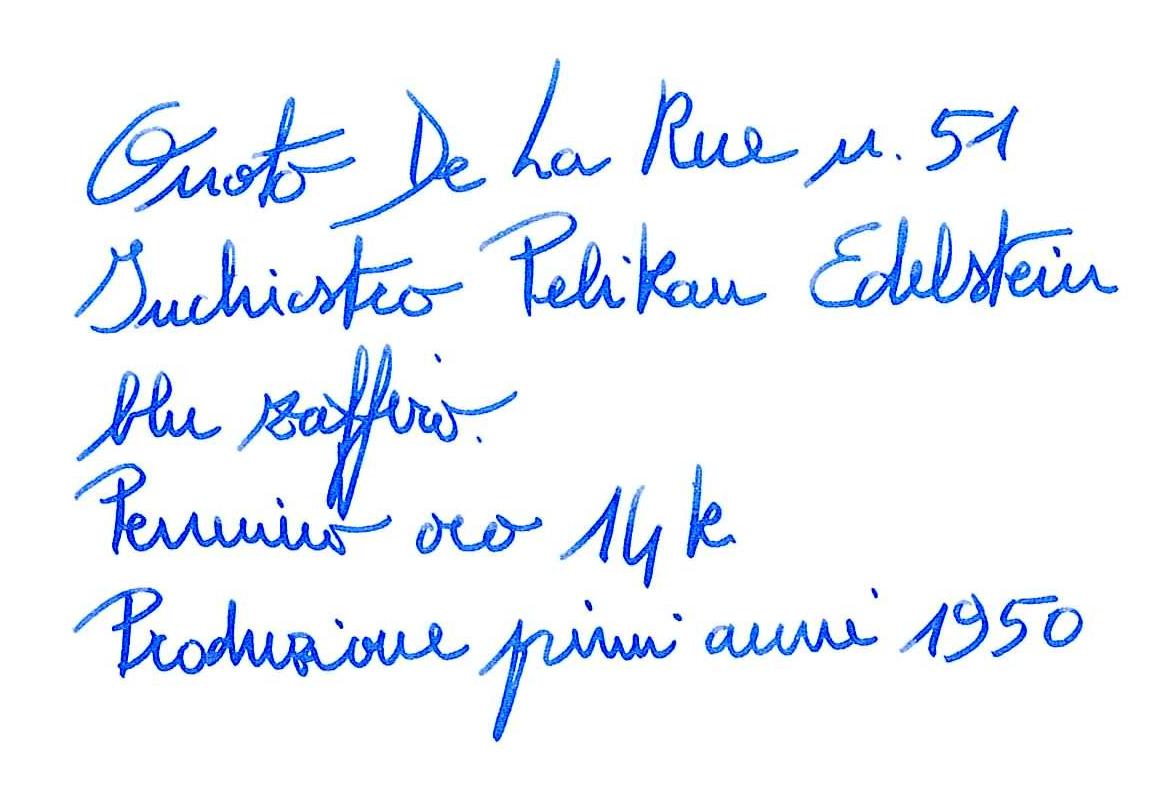 Onoto De La Rue n. 51
Inchiostro Pelikan Edelstein
blu zaffiro.
Pennino oro 14 k
Produzione primi anni 1950